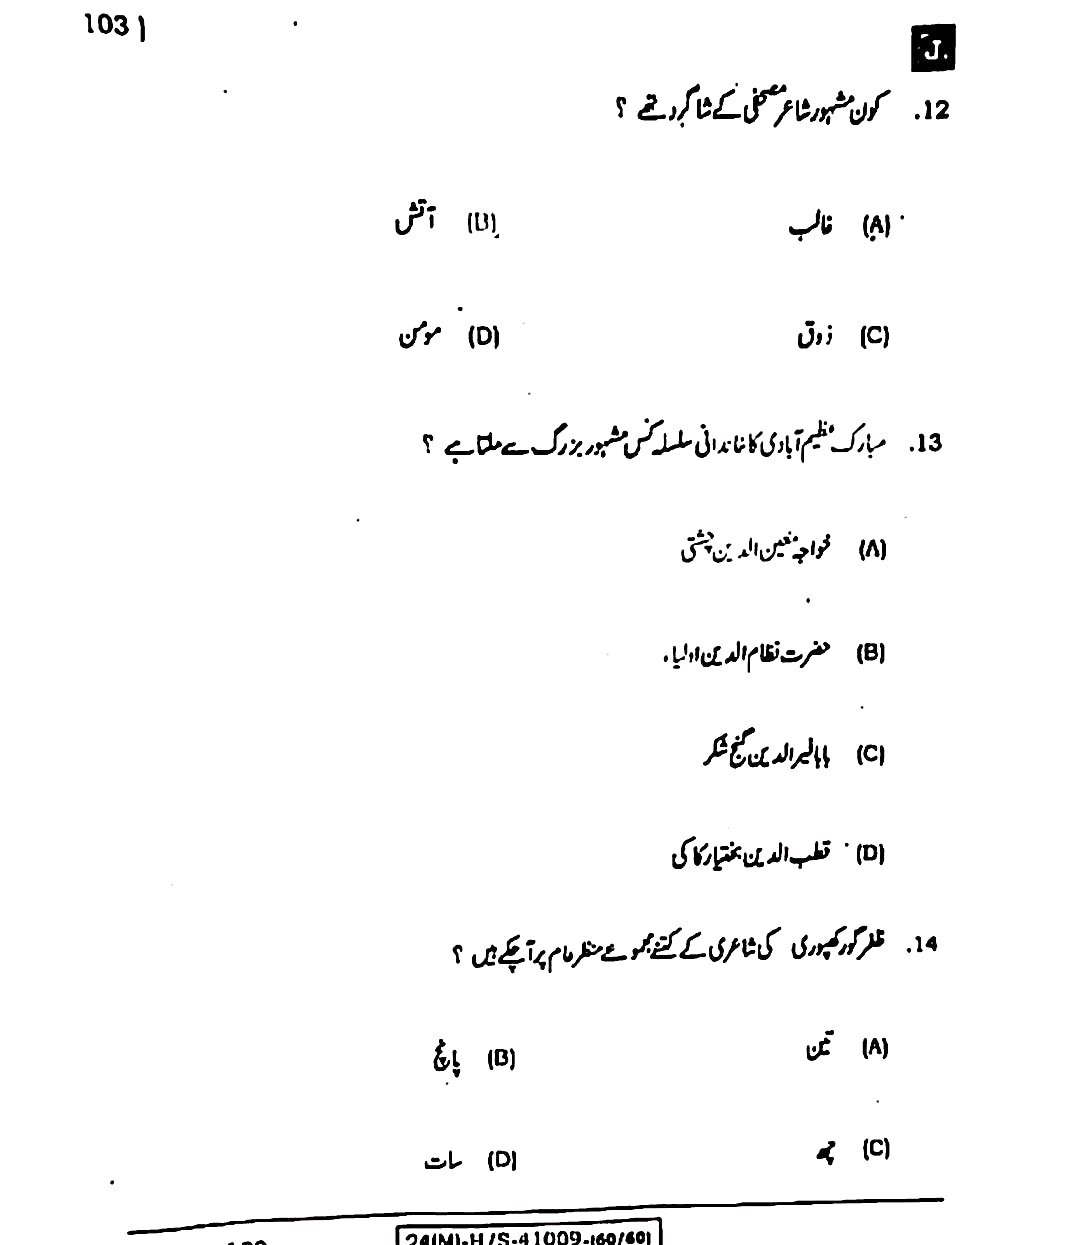 103 J
12. کون مشہور شاعر مصحفی کے شاگرد تھے ؟
(A) غالب (B) آتش
(C) ذوق (D) مومن
13. مبارک عظیم آبادی کا خاندانی سلسلہ کس مشہور بزرگ سے ملتا ہے ؟
(A) خواجہ معین الدین چشتی
(B) حضرت نظام الدین اولیاء
(C) بابا فرید الدین گنج شکر
(D) قطب الدین بختیار کاکی
14. ظفر گورکھپوری کی شاعری کے کتنے مجموعے منظر عام پر آچکے ہیں ؟
(A) تین (B) پانچ
(C) چھ (D) سات
24(M)-H/S-41009-(60/60)